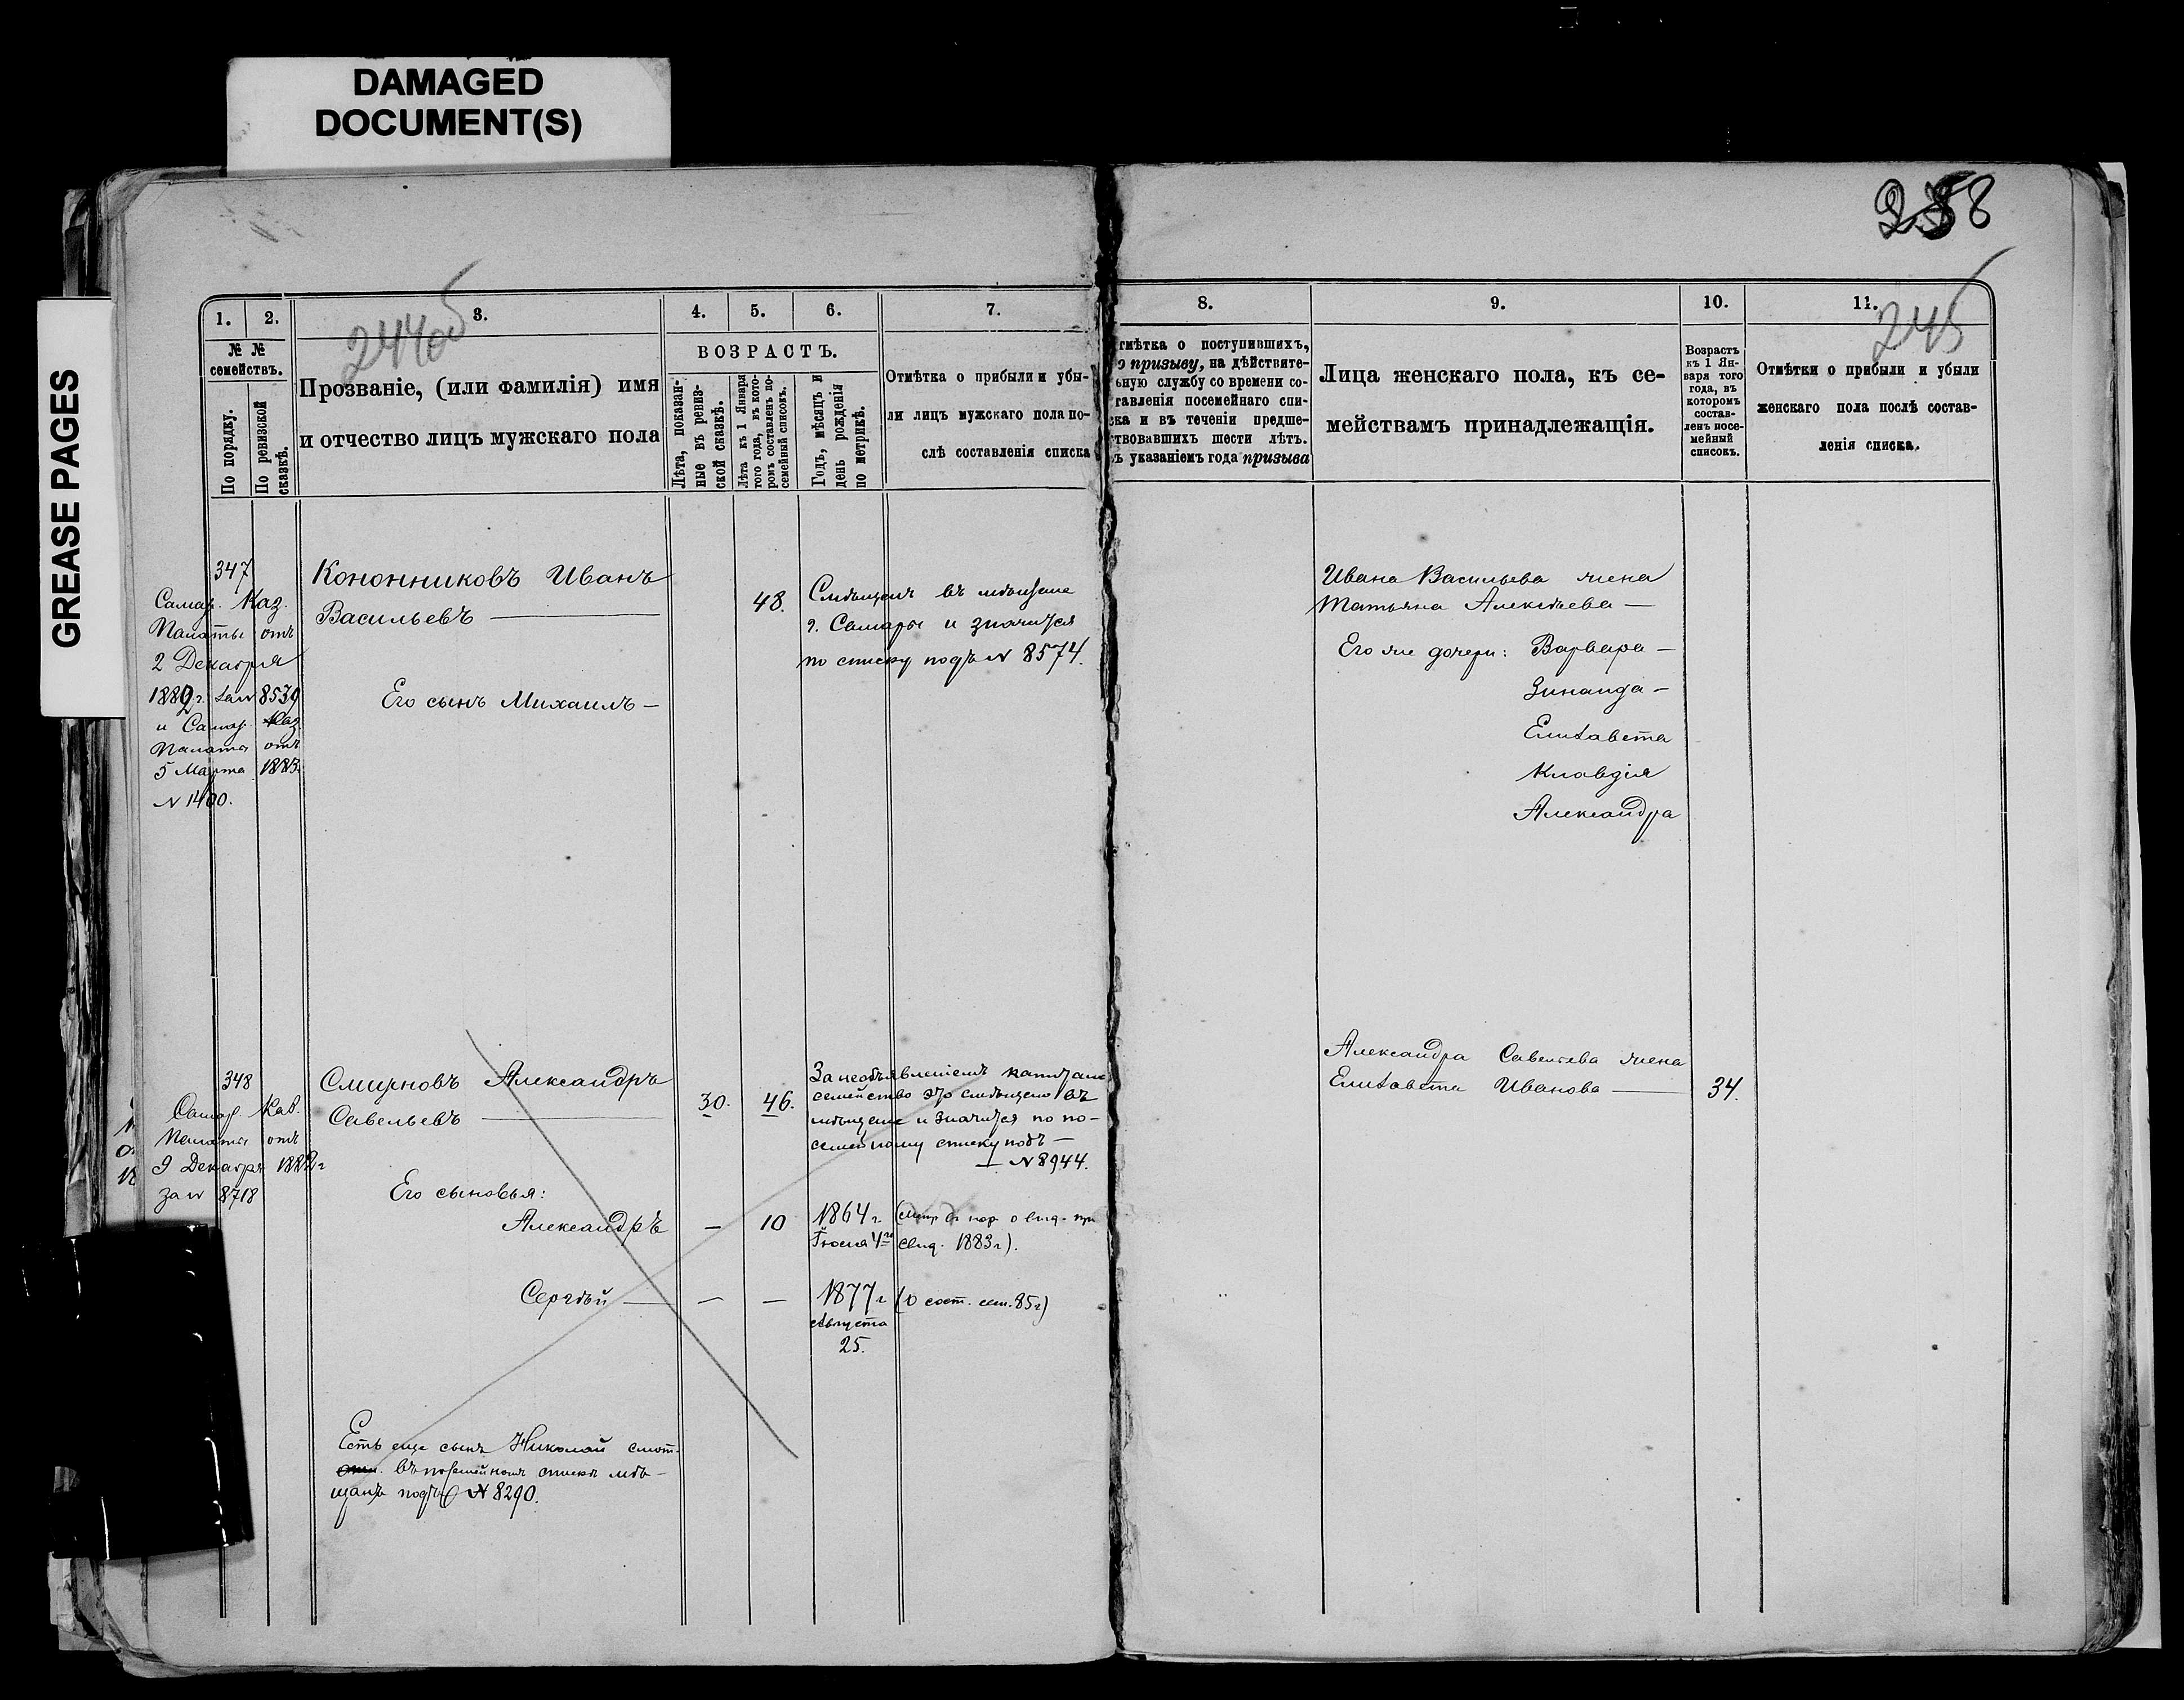 DAMAGED
DOCUMENT(S)
GREASE PAGES
258
244об
245
1.
2.
3.
4.
5.
6.
7.
8.
9.
10.
11.
№ №
семействъ.
По порядку.
По ревизской
сказкѣ.
Прозваніе, (или фамилія) имя
и отчество лицъ мужскаго пола
ВОЗРАСТЪ.
Лѣта, показан-
ные въ ревиз-
ской сказкѣ.
Лѣта къ 1 Января
того года, въ кото-
ромъ составленъ по-
семейный списокъ.
Годъ, мѣсяцъ и
день рожденія
по метрикѣ.
Отмѣтка о прибыли и убы-
ли лицъ мужскаго пола по-
слѣ составленія списка
тмѣтка о поступившихъ,
о призыву, на дѣйствите-
ьную службу со времени со-
тавленія посемейнаго спи-
ска и въ теченіи предше-
ствовавшихъ шести лѣтъ.
ъ указаніемъ года призыва
Лица женскаго пола, къ се-
мействамъ принадлежащія.
Возрастъ
къ 1 Ян-
варя того
года, въ
которомъ
состав-
ленъ посе-
мейный
списокъ.
Отмѣтки о прибыли и убыли
женскаго пола послѣ состав-
ленія списка.
347
Самар. Каз.
Палаты отъ
2 Декабря
1882 г. за № 8539
и Самар. Каз.
Палаты отъ
5 Марта 1883
№ 1400.
Кононниковъ Иванъ
Васильевъ —
48.
Смѣщенъ въ мѣщане
г. Самары и значится
по списку подъ № 8574.
Его сынъ Михаилъ —
Ивана Васильева жена
Татьяна Алексѣева —
Его же дочери: Варвара —
Зинаида —
Елизавета
Клавдія
Александра
348
Самар. Каз.
Палаты отъ
9 Декабря 1882 г
за № 8718
Смирновъ Александръ
Савельевъ —
30.
46.
За необъявленіемъ капитала
семейство это смѣщено въ
мѣщане и значится по по-
семейному списку подъ —
— № 8944.
Его сыновья:
Александръ
—
10
1864 г.
Іюля 4го
свид. 1883 г).
Сергѣй —
—
—
1877 г
Августа
25.
(о сост. сем. 85 г)
Есть еще сынъ Николай смот.
въ посемейномъ списке мѣ-
щанъ подъ № 8290.
Александра Савельева жена
Елизавета Иванова —
34.